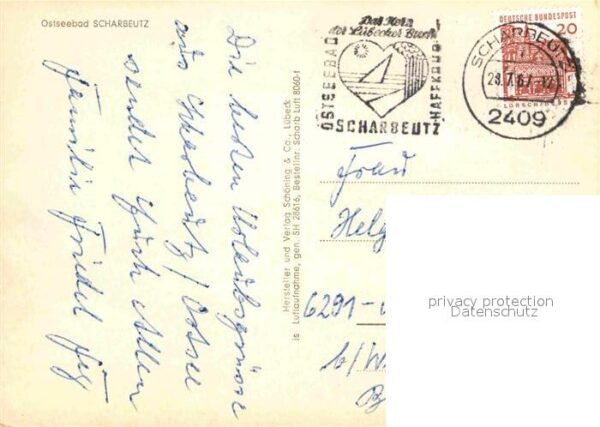 Ostseebad SCHARBEUTZ
Die besten Urlaubsgrüsse
aus Scharbeutz / Ostsee
sendet Euch Allen
Familie
Hersteller und Verlag Schöning & Co., Lübeck
Luftaufnahme, gen. SH 28616, Bestellnr. Scharb Luft 8060-f
Das Herz
der Lübecker Bucht
OSTSEEBAD
HAFFKRUG
SCHARBEUTZ
SCHARBEUTZ
2409
DEUTSCHE BUNDESPOST
20
Frau
Helg
6291-
b/W
privacy protection
Datenschutz